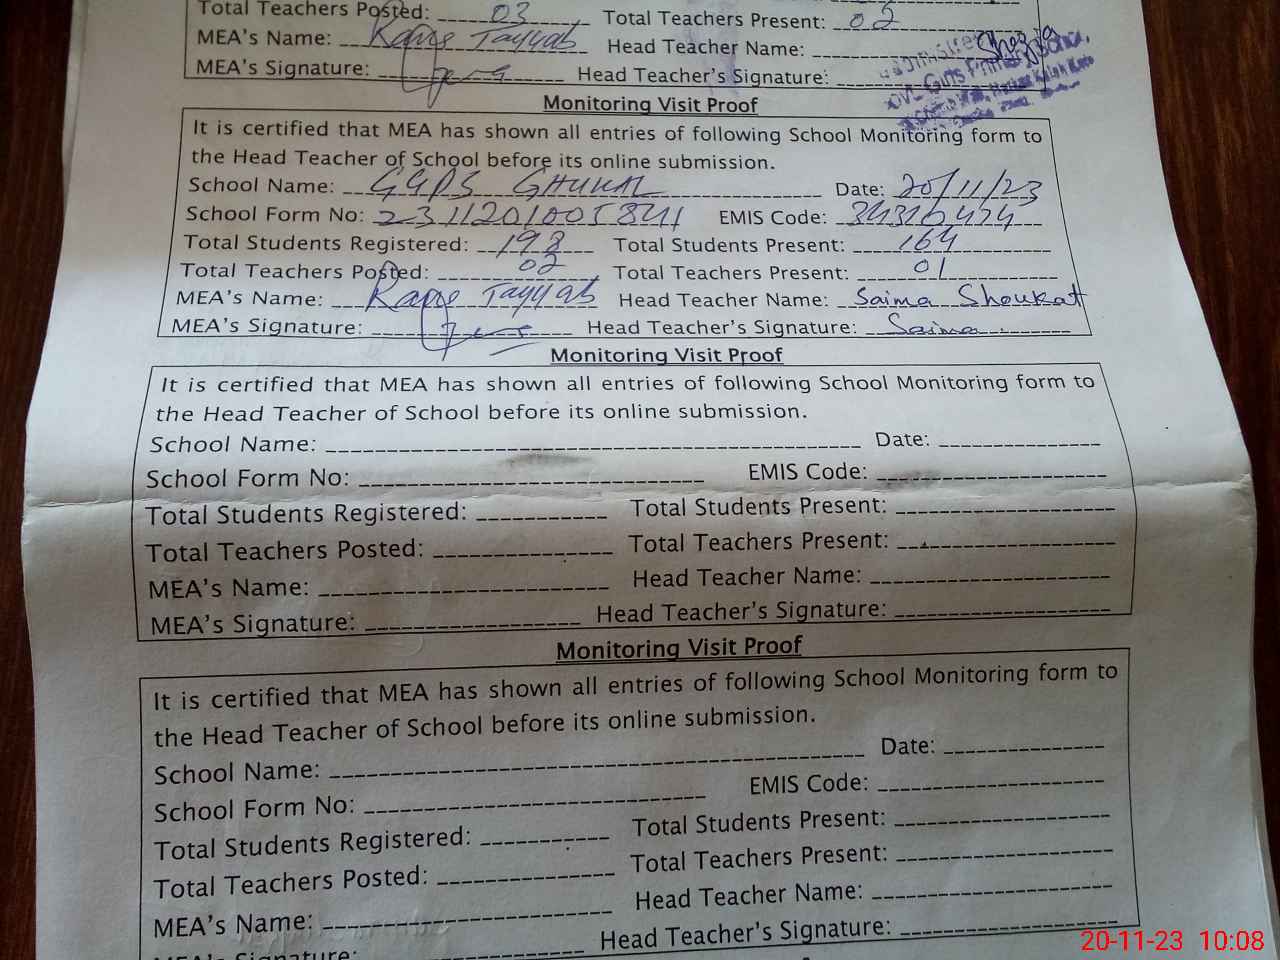 Total Teachers Posted: 03 Total Teachers Present: 02
MEA's Name: Tayyab Head Teacher Name: Shazia
MEA's Signature: Head Teacher's Signature:
Monitoring Visit Proof
It is certified that MEA has shown all entries of following School Monitoring form to
the Head Teacher of School before its online submission.
School Name: GGPS GHUKAL Date: 20/11/23
School Form No: EMIS Code: 34310424
Total Students Registered: 198 Total Students Present: 164
Total Teachers Posted: 02 Total Teachers Present: 01
MEA's Name: Tayyab Head Teacher Name: Saima Shoukat
MEA's Signature: Head Teacher's Signature: Saima
Monitoring Visit Proof
It is certified that MEA has shown all entries of following School Monitoring form to
the Head Teacher of School before its online submission.
School Name: Date:
School Form No: EMIS Code:
Total Students Registered: Total Students Present:
Total Teachers Posted: Total Teachers Present:
MEA's Name: Head Teacher Name:
MEA's Signature: Head Teacher's Signature:
Monitoring Visit Proof
It is certified that MEA has shown all entries of following School Monitoring form to
the Head Teacher of School before its online submission.
School Name: Date:
School Form No: EMIS Code:
Total Students Registered: Total Students Present:
Total Teachers Posted: Total Teachers Present:
MEA's Name: Head Teacher Name:
MEA's Signature: Head Teacher's Signature:
20-11-23 10:08